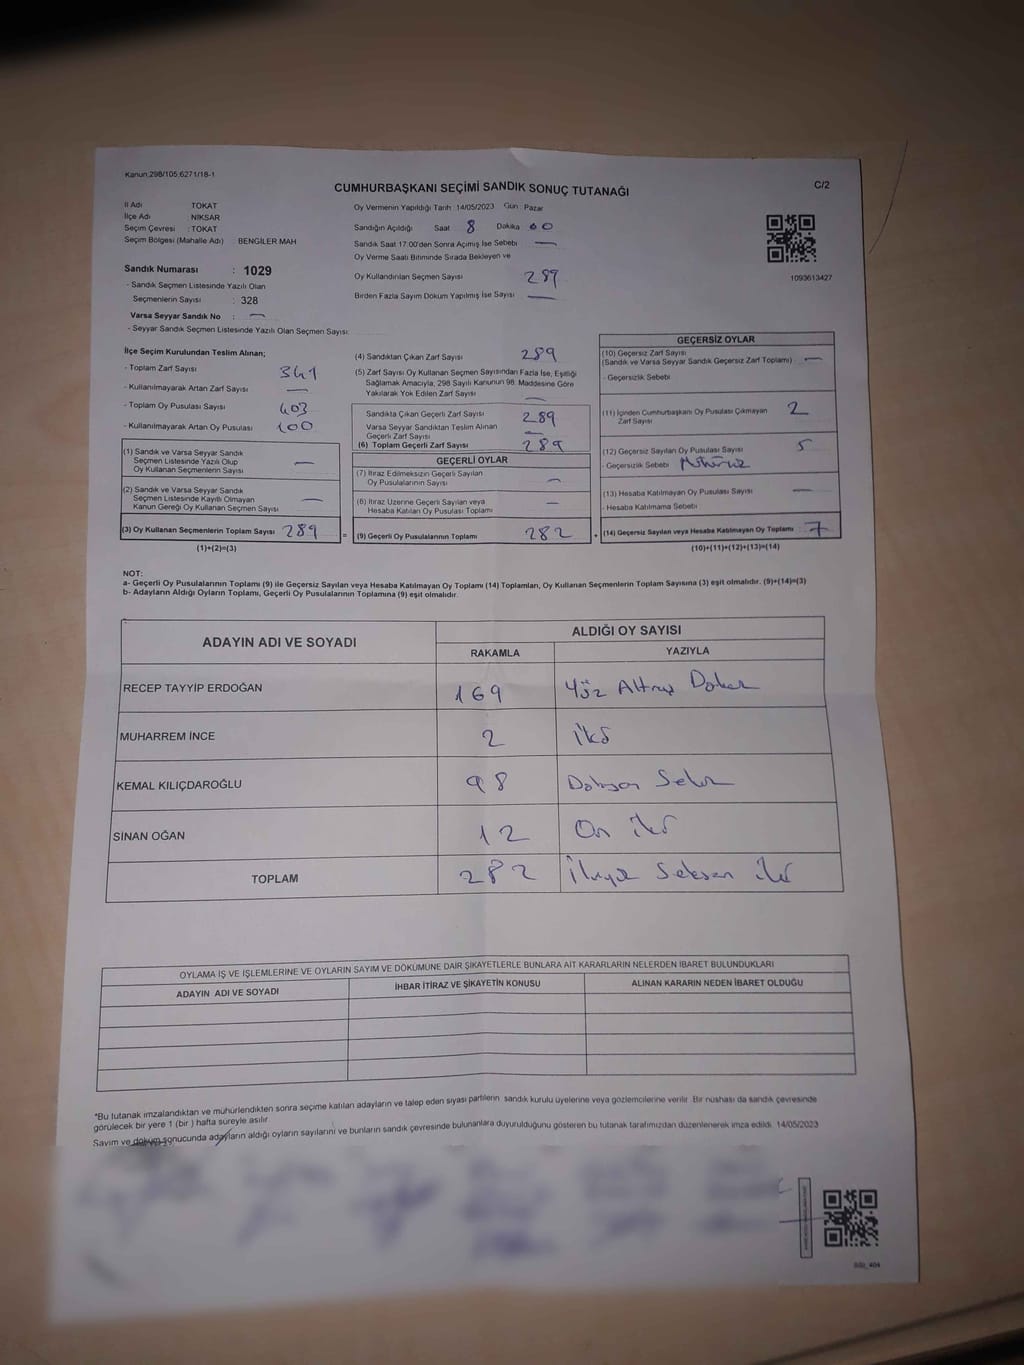 Kanun:298/105;6271/18-1
CUMHURBAŞKANI SEÇİMİ SANDIK SONUÇ TUTANAĞI
C/2
İl Adı TOKAT
İlçe Adı : NİKSAR
Seçim Çevresi : TOKAT
Seçim Bölgesi (Mahalle Adı) BENGİLER MAH
Sandık Numarası : 1029
- Sandık Seçmen Listesinde Yazılı Olan
Seçmenlerin Sayısı : 328
Varsa Seyyar Sandık No : —
- Seyyar Sandık Seçmen Listesinde Yazılı Olan Seçmen Sayısı:
Oy Vermenin Yapıldığı Tarih :14/05/2023 Gün : Pazar
Sandığın Açıldığı Saat 8 Dakika 00
Sandık Saat 17:00'den Sonra Açımış İse Sebebi —
Oy Verme Saati Bitiminde Sırada Bekleyen ve
Oy Kullandırılan Seçmen Sayısı 289
Birden Fazla Sayım Döküm Yapılmış İse Sayısı —
1093613427
İlçe Seçim Kurulundan Teslim Alınan;
- Toplam Zarf Sayısı 341
- Kullanılmayarak Artan Zarf Sayısı —
- Toplam Oy Pusulası Sayısı 403
- Kullanılmayarak Artan Oy Pusulası 100
(1) Sandık ve Varsa Seyyar Sandık
Seçmen Listesinde Yazılı Olup
Oy Kullanan Seçmenlerin Sayısı —
(2) Sandık ve Varsa Seyyar Sandık
Seçmen Listesinde Kayıtlı Olmayan
Kanun Gereği Oy Kullanan Seçmen Sayısı —
(3) Oy Kullanan Seçmenlerin Toplam Sayısı 289
(1)+(2)=(3)
(4) Sandıktan Çıkan Zarf Sayısı 289
(5) Zarf Sayısı Oy Kullanan Seçmen Sayısından Fazla İse, Eşitliği
Sağlamak Amacıyla, 298 Sayılı Kanunun 98. Maddesine Göre
Yakılarak Yok Edilen Zarf Sayısı —
Sandıkta Çıkan Geçerli Zarf Sayısı 289
Varsa Seyyar Sandıktan Teslim Alınan
Geçerli Zarf Sayısı —
(6) Toplam Geçerli Zarf Sayısı 289
GEÇERLİ OYLAR
(7) İtiraz Edilmeksizin Geçerli Sayılan
Oy Pusulalarının Sayısı —
(8) İtiraz Üzerine Geçerli Sayılan veya
Hesaba Katılan Oy Pusulası Toplamı —
= (9) Geçerli Oy Pusulalarının Toplamı 282 +
GEÇERSİZ OYLAR
(10) Geçersiz Zarf Sayısı
(Sandık ve Varsa Seyyar Sandık Geçersiz Zarf Toplamı) —
- Geçersizlik Sebebi
(11) İçinden Cumhurbaşkanı Oy Pusulası Çıkmayan 2
Zarf Sayısı
(12) Geçersiz Sayılan Oy Pusulası Sayısı 5
- Geçersizlik Sebebi Mühürsüz
(13) Hesaba Katılmayan Oy Pusulası Sayısı —
- Hesaba Katılmama Sebebi
(14) Geçersiz Sayılan veya Hesaba Katılmayan Oy Toplamı 7
(10)+(11)+(12)+(13)=(14)
NOT:
a- Geçerli Oy Pusulalarının Toplamı (9) ile Geçersiz Sayılan veya Hesaba Katılmayan Oy Toplamı (14) Toplamları, Oy Kullanan Seçmenlerin Toplam Sayısına (3) eşit olmalıdır. (9)+(14)=(3)
b- Adayların Aldığı Oyların Toplamı, Geçerli Oy Pusulalarının Toplamına (9) eşit olmalıdır.
ADAYIN ADI VE SOYADI ALDIĞI OY SAYISI
RAKAMLA YAZIYLA
RECEP TAYYİP ERDOĞAN 169 Yüz Altmış Dokuz
MUHARREM İNCE 2 iki
KEMAL KILIÇDAROĞLU 98 Doksan Sekiz
SİNAN OĞAN 12 On iki
TOPLAM 282 ikiyüz Seksen iki
OYLAMA İŞ VE İŞLEMLERİNE VE OYLARIN SAYIM VE DÖKÜMÜNE DAİR ŞİKAYETLERLE BUNLARA AİT KARARLARIN NELERDEN İBARET BULUNDUKLARI
ADAYIN ADI VE SOYADI İHBAR İTİRAZ VE ŞİKAYETİN KONUSU ALINAN KARARIN NEDEN İBARET OLDUĞU
*Bu tutanak imzalandıktan ve mühürlendikten sonra seçime katılan adayların ve talep eden siyasi partilerin sandık kurulu üyelerine veya gözlemcilerine verilir. Bir nüshası da sandık çevresinde
görülecek bir yere 1 (bir ) hafta süreyle asılır.
Sayım ve döküm sonucunda adayların aldığı oyların sayılarını ve bunların sandık çevresinde bulunanlara duyurulduğunu gösteren bu tutanak tarafımızdan düzenlenerek imza edildi. 14/05/2023